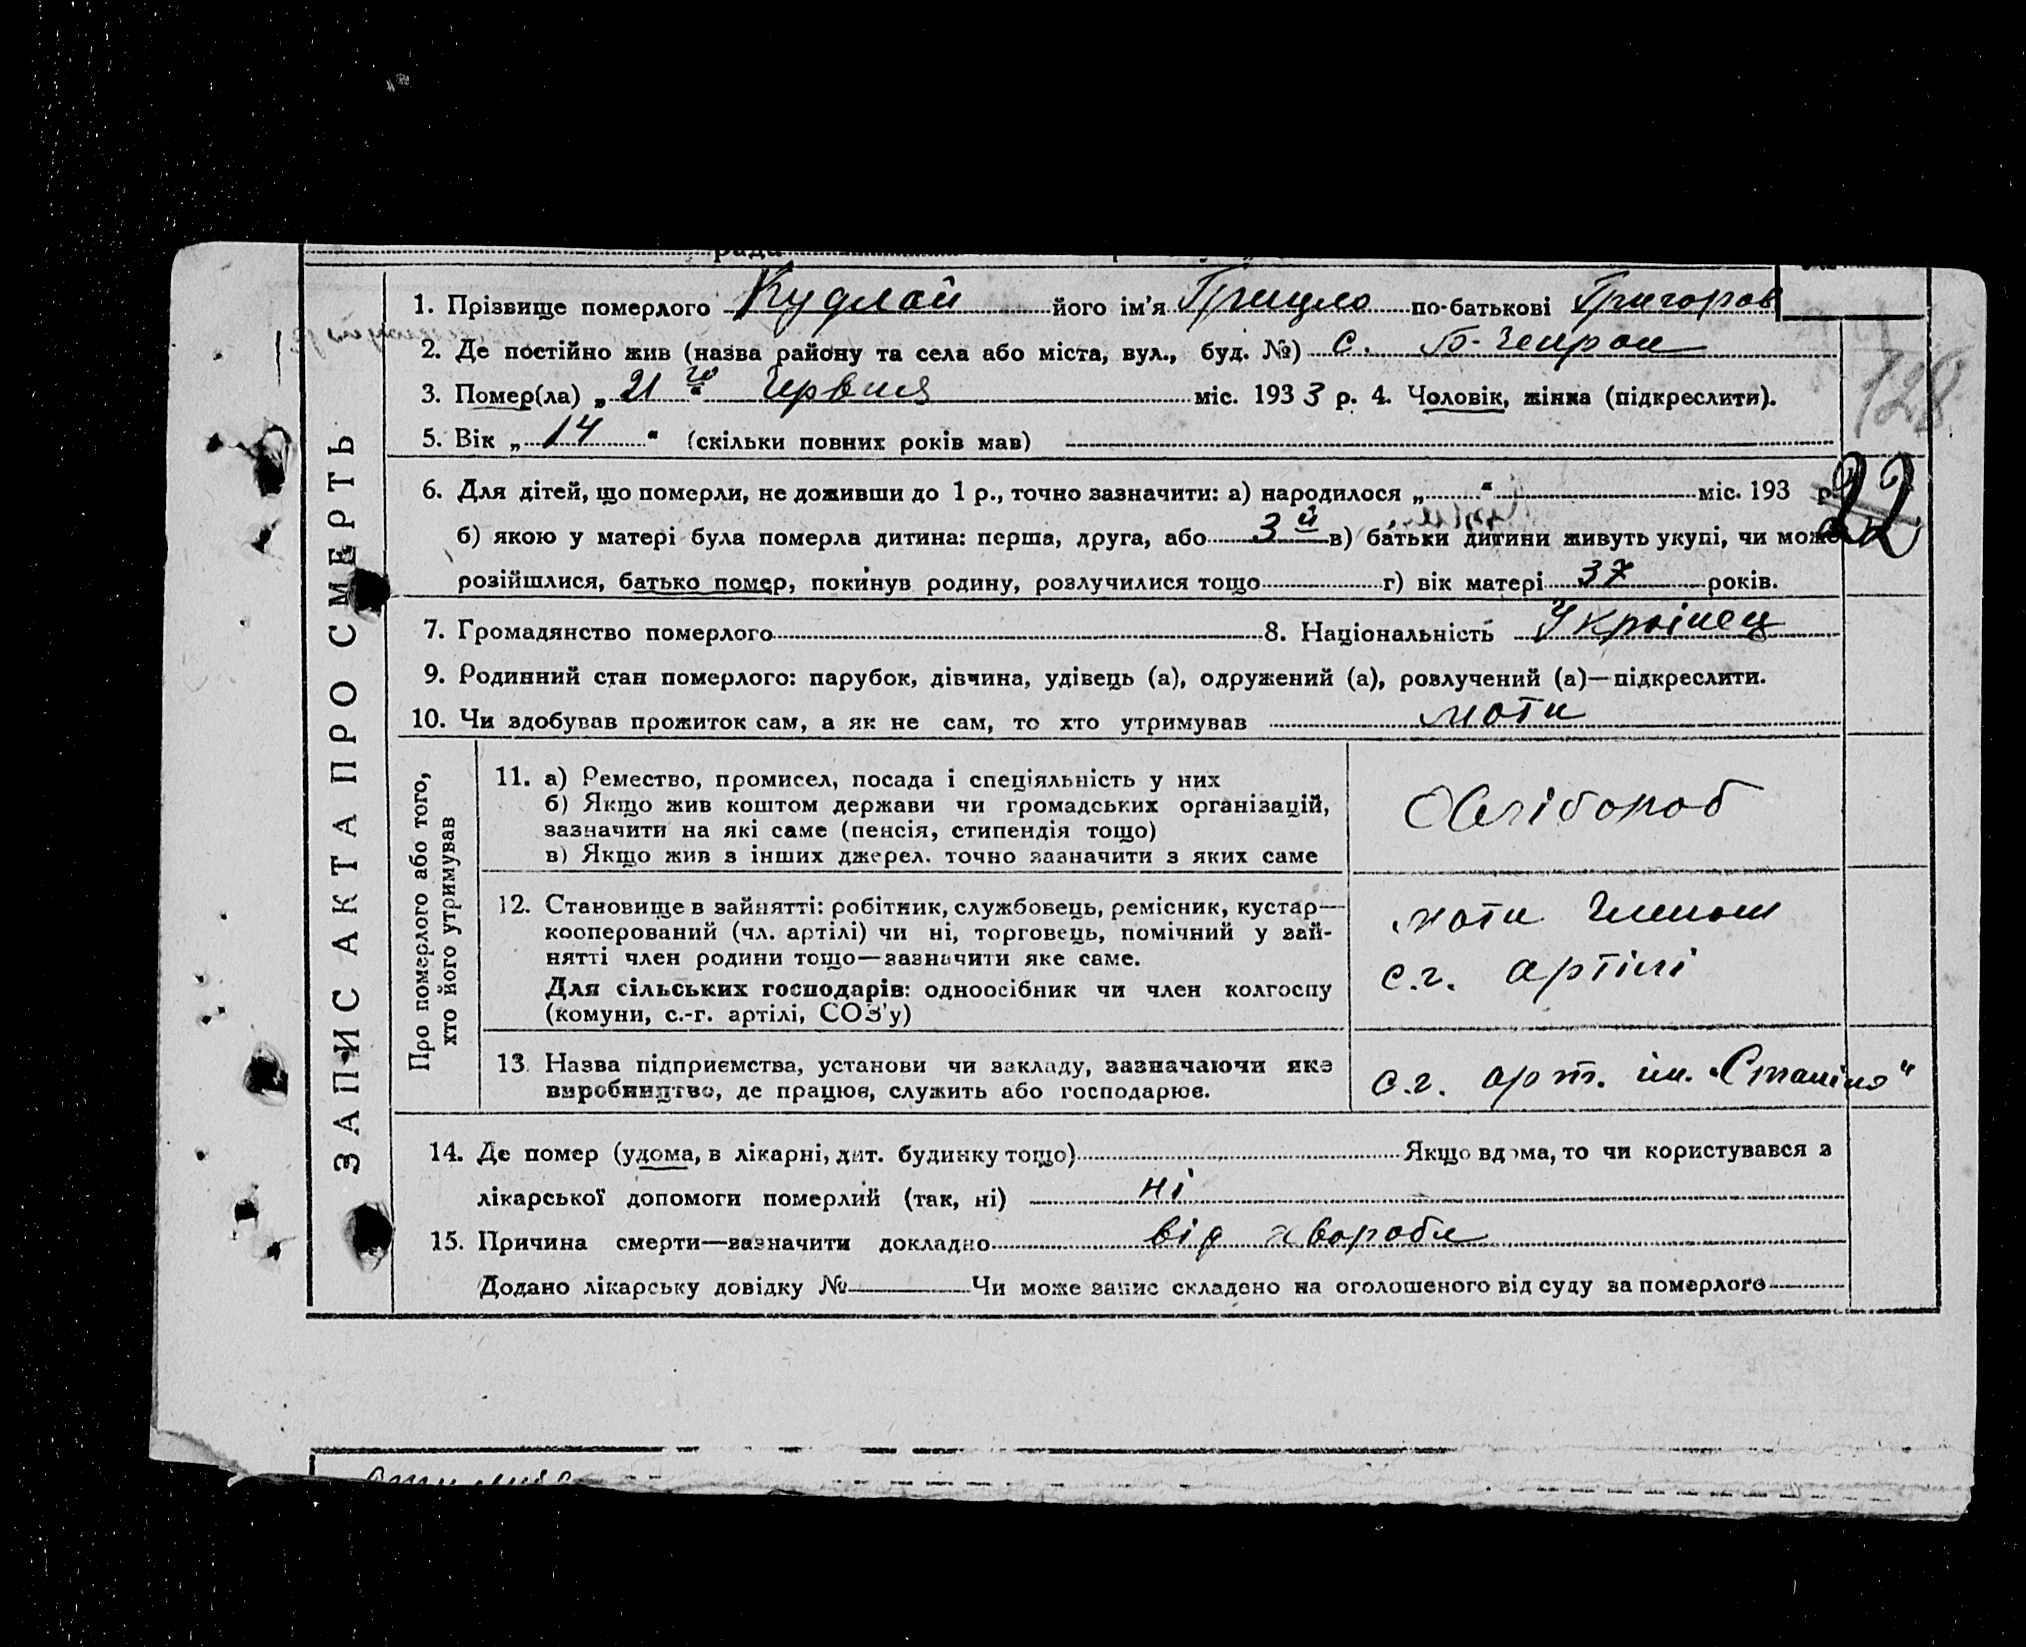 рада
1. Прізвище померлого Кудлай його ім'я Грицко по-батькові Григоров
2. Де постійно жив (назва району та села або міста, вул., буд. №) с. Б-
3. Помер(ла) „21го“ Червня міс. 1933 р. 4. Чоловік, жінка (підкреслити).
5. Вік „14“ (скільки повних років мав)
6. Для дітей, що померли, не доживши до 1 р., точно зазначити: а) народилося „ “ міс. 193 р.
22
128
б) якою у матері була померла дитина: перша, друга, або 3й в) батьки дитини живуть укупі, чи може
розійшлися, батько помер, покинув родину, розлучилися тощо г) вік матері 37 років.
7. Громадянство померлого 8. Національність Украінец
9. Родинний стан померлого: парубок, дівчина, удівець (а), одружений (а), розлучений (а)—підкреслити.
10. Чи здобував прожиток сам, а як не сам, то хто утримував мати
ЗАПИС АКТА ПРО СМЕРТЬ
Про померлого або того,
хто його утримував
11. а) Ремество, промисел, посада і спеціяльність у них
б) Якщо жив коштом держави чи громадських організацій,
зазначити на які саме (пенсія, стипендія тощо)
в) Якщо жив з інших джерел. точно зазначити з яких саме
Хлібороб
12. Становище в зайнятті: робітник, службовець, ремісник, кустар—
кооперований (чл. артілі) чи ні, торговець, помічний у зай-
нятті член родини тощо—зазначити яке саме.
Для сільських господарів: одноосібник чи член колгоспу
(комуни, с.-г. артілі, СОЗ'у)
мати членом
с.г. артілі
13. Назва підприємства, установи чи закладу, зазначаючи яке
виробництво, де працює, служить або господарює.
с.г. арт. ім. „Сталіна“
14. Де помер (удома, в лікарні, дит. будинку тощо) Якщо вдома, то чи користувався з
лікарської допомоги померлий (так, ні) ні
15. Причина смерти—зазначити докладно від хвороби
Додано лікарську довідку № Чи може запис складено на оголошеного від суду за померлого